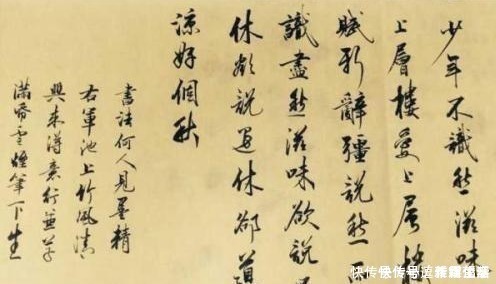 少年不識愁滋味
上層樓愛上層樓
賦新辭彊說愁而
識盡愁滋味欲說
休欲說還休卻道
涼好個秋
書法何人見墨精
右軍池上竹風清
興來得意行並草
滿帋雲煙筆下生
快传号